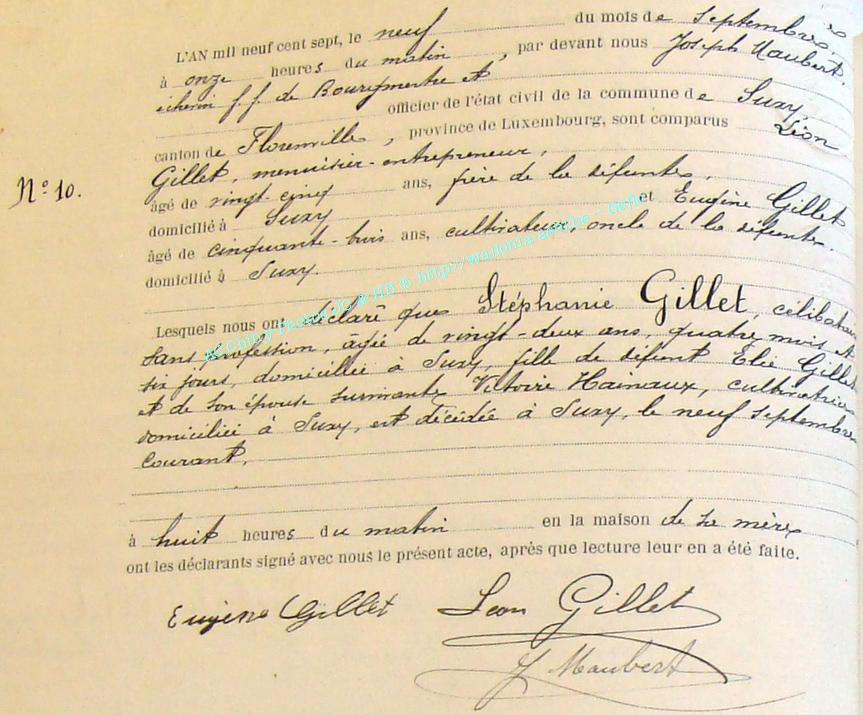 L'AN mil neuf cent sept, le neuf du mois de septembre,
à onze heures du matin, par devant nous Joseph Maubert,
échevin f.f. de Bourgmestre et
officier de l'état civil de la commune de Suxy,
canton de Florenville, province de Luxembourg, sont comparus Léon
Gillet, menuisier-entrepreneur,
N° 10.
âgé de vingt-cinq ans, frère de la défunte,
domicilié à Suxy et Eugène Gillet
âgé de cinquante-trois ans, cultivateur, oncle de la défunte.
domicilié à Suxy.
Lesquels nous ont déclaré que Stéphanie Gillet, célibataire
sans profession, âgée de vingt-deux ans, quatre mois et
six jours, domiciliée à Suxy, fille de défunt Elie Gillet
et de son épouse survivante Victoire Hainaux, cultivatrice
domiciliée à Suxy, est décédée à Suxy, le neuf septembre
courant,
à huit heures du matin en la maison de sa mère
ont les déclarants signé avec nous le présent acte, après que lecture leur en a été faite.
Eugène Gillet Léon Gillet
J Maubert